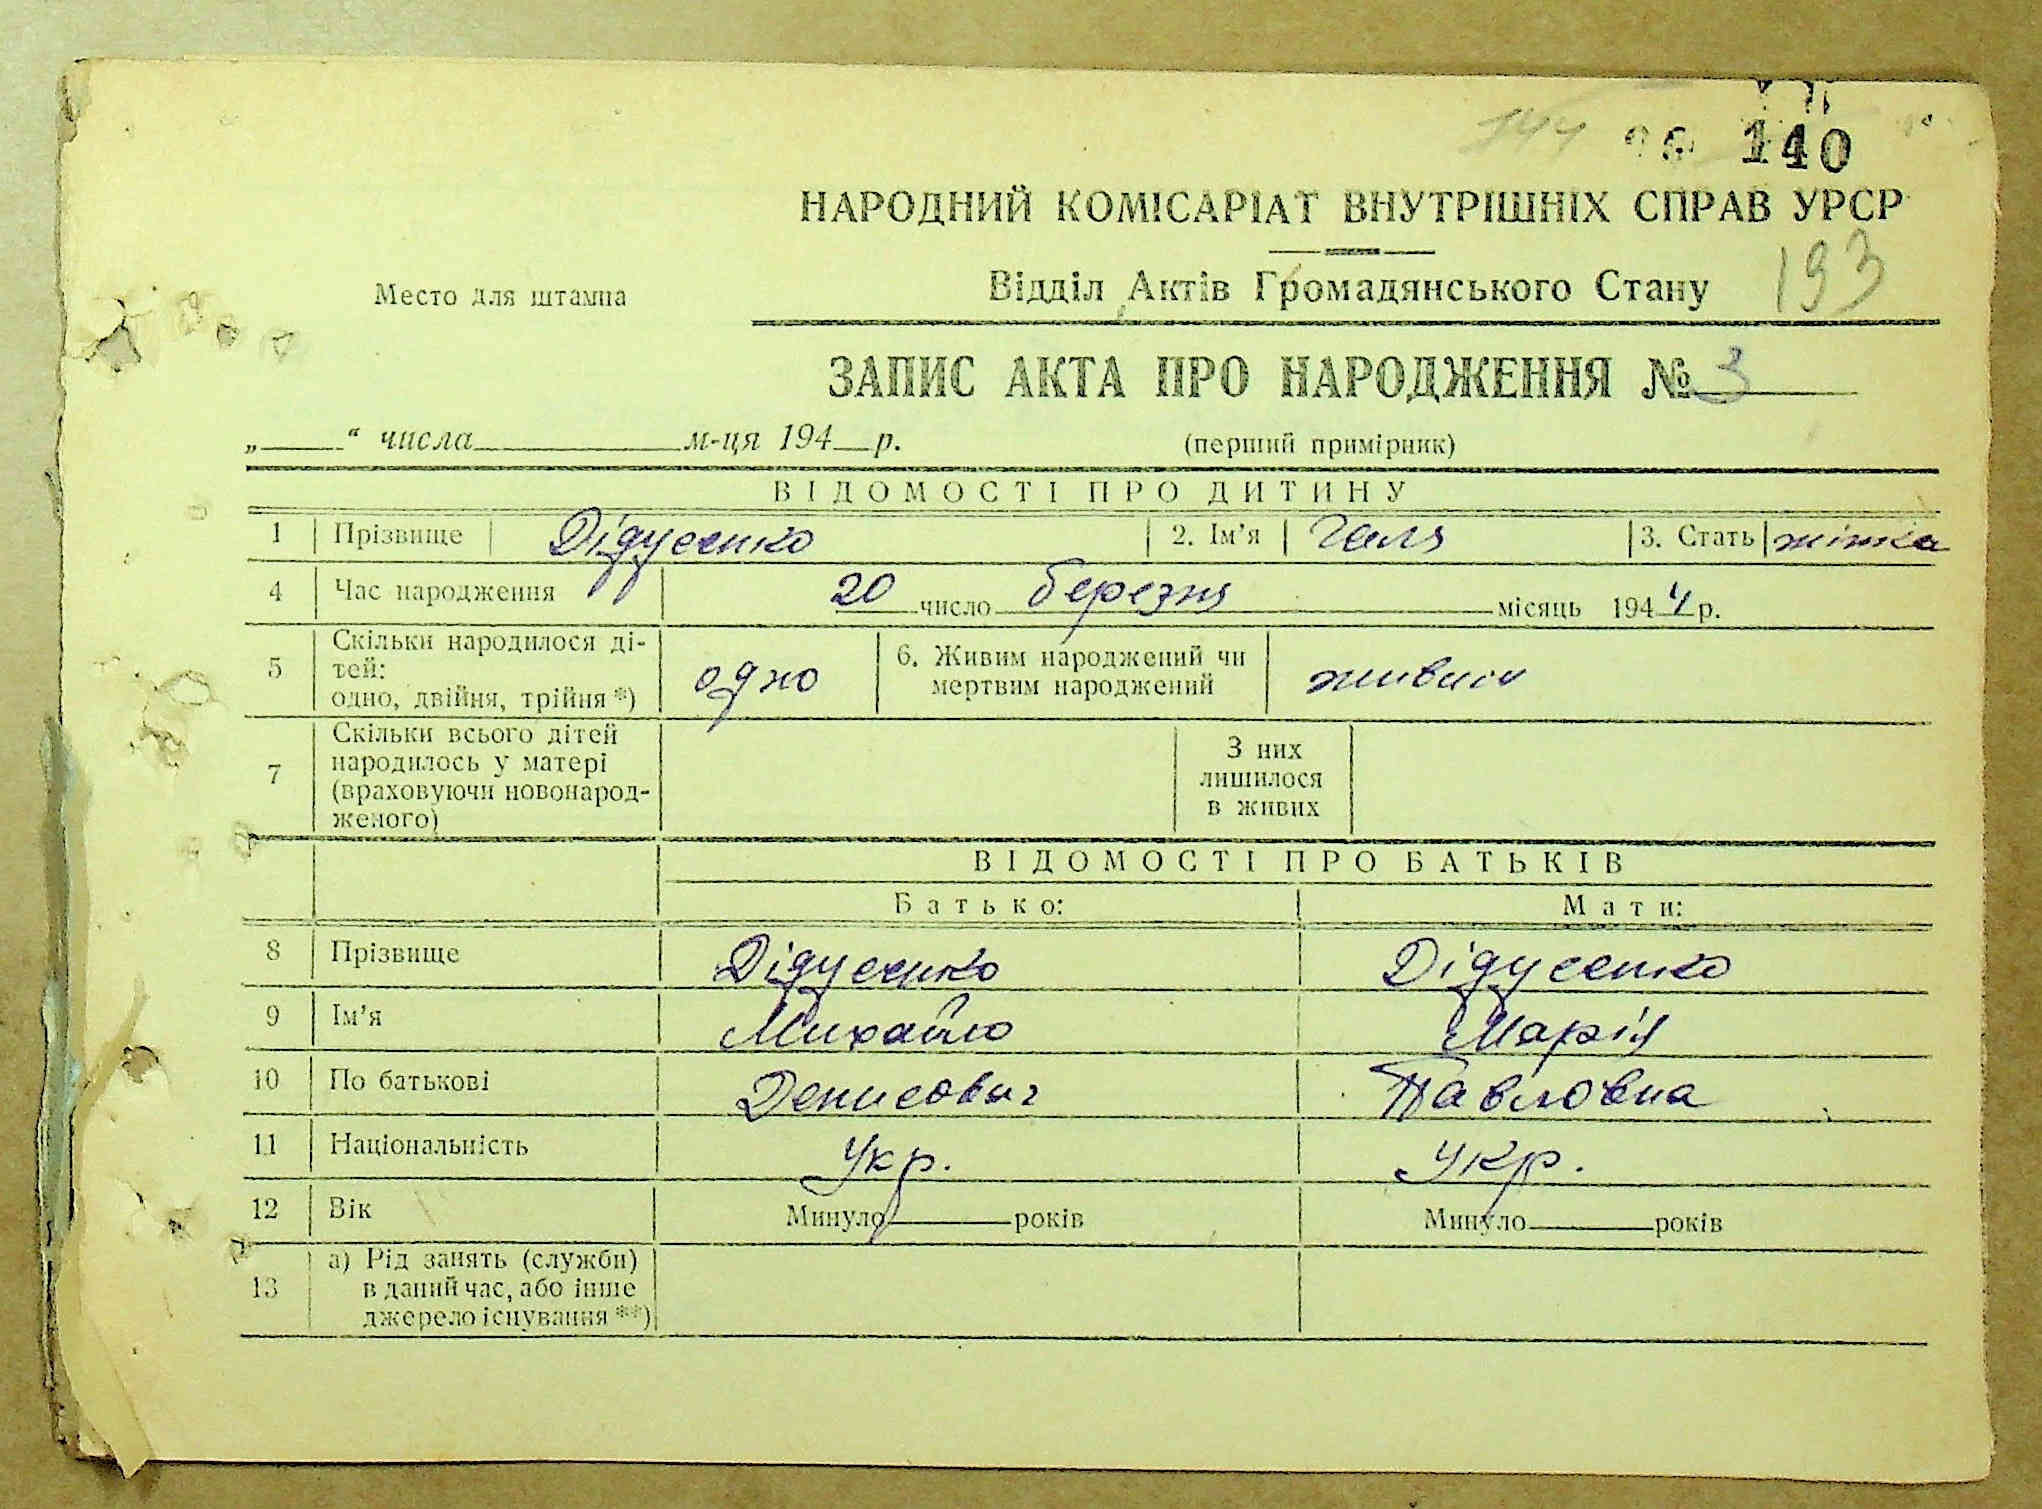 144 140
НАРОДНИЙ КОМІСАРІАТ ВНУТРІШНІХ СПРАВ УРСР
193
Место для штампа
Відділ Актів Громадянського Стану
ЗАПИС АКТА ПРО НАРОДЖЕННЯ № 3
„____“ числа ____ м-ця 194__ р. (перший примірник)
ВІДОМОСТІ ПРО ДИТИНУ
1 Прізвище Дідусенко 2. Ім’я Галя 3. Стать жінка
4 Час народження 20 число березня місяць 1944 р.
5 Скільки народилося ді-
тей:
одно, двійня, трійня *) одно 6. Живим народжений чи
мертвим народжений живим
7 Скільки всього дітей
народилось у матері
(враховуючи новонарод-
женого) З них
лишилося
в живих
ВІДОМОСТІ ПРО БАТЬКІВ
Батько: Мати:
8 Прізвище Дідусенко Дідусенко
9 Ім’я Михайло Марія
10 По батькові Денисович Павловна
11 Національність Укр. Укр.
12 Вік Минуло ____ років Минуло ____ років
13 а) Рід занять (служби)
в даний час, або інше
джерело існування **)